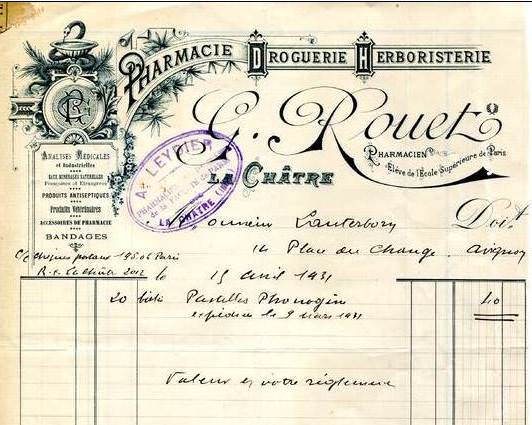 PHARMACIE DROGUERIE HERBORISTERIE
G. Rouet
PHARMACIEN
Elève de l'Ecole Supérieure de Paris
LA CHÂTRE
A. LEYDIER
LA CHÂTRE
ANALYSES MÉDICALES
et Industrielles
EAUX MINÉRALES NATURELLES
Françaises et Étrangères
PRODUITS ANTISEPTIQUES
Produits Vétérinaires
ACCESSOIRES DE PHARMACIE
BANDAGES
Monsieur Lauterbory Doit
14 Place du Change. Avignon
c/c chèques postaux 195.06 Paris
R.C. La Châtre 2012 le 15 avril 1931
20 bites Pastilles Phonogin 40
expédiées le 9 mars 1931
Valeur en votre règlement